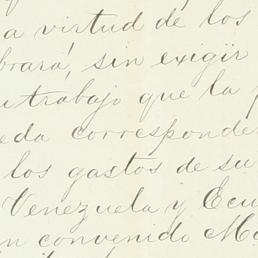 a virtud de los
brará, sin exigir
trabajo que la
eda corresponder
los gastos de su
Venezuela y Ecu
n convenido